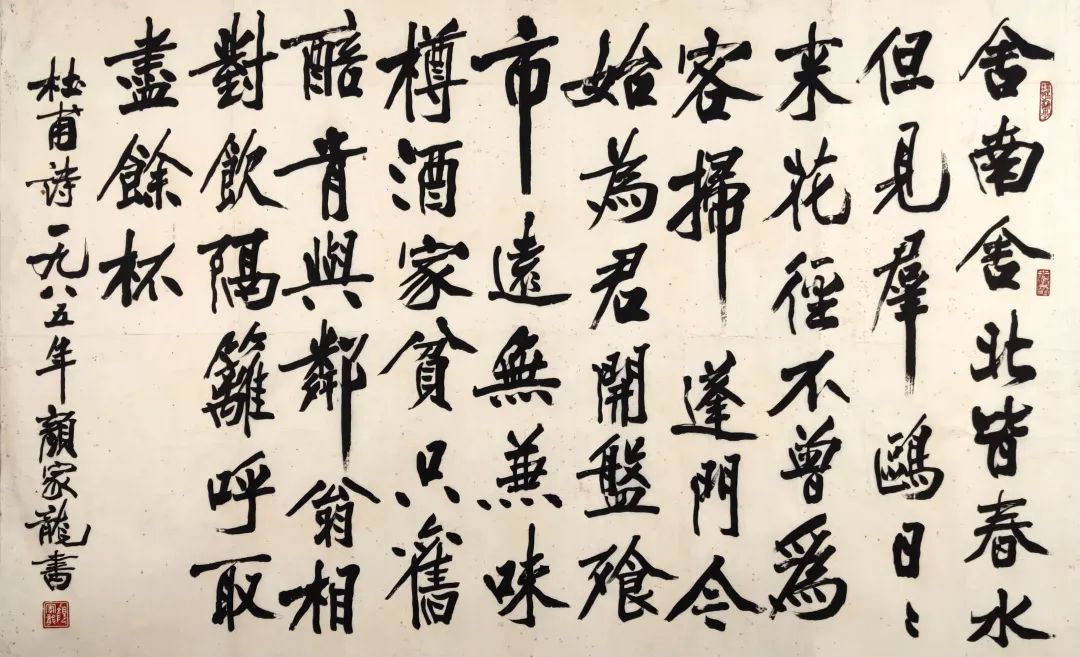 舍南舍北皆春水
但見羣鷗日〻
来花徑不曾爲
客掃蓬門今
始為君開盤飱
市遠無兼味
樽酒家貧只舊
醅肯與鄰翁相
對飲隔籬呼取
盡餘杯
杜甫詩一九八五年顏家龍書